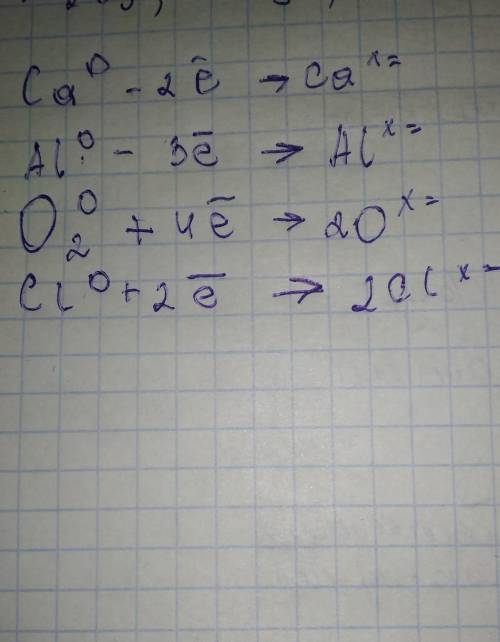 Ca⁰ - 2ē → Ca ˣ⁼
Al⁰ - 3ē → Al ˣ⁼
O₂⁰ + 4ē → 2O ˣ⁼
Cl⁰ + 2ē → 2Cl ˣ⁼